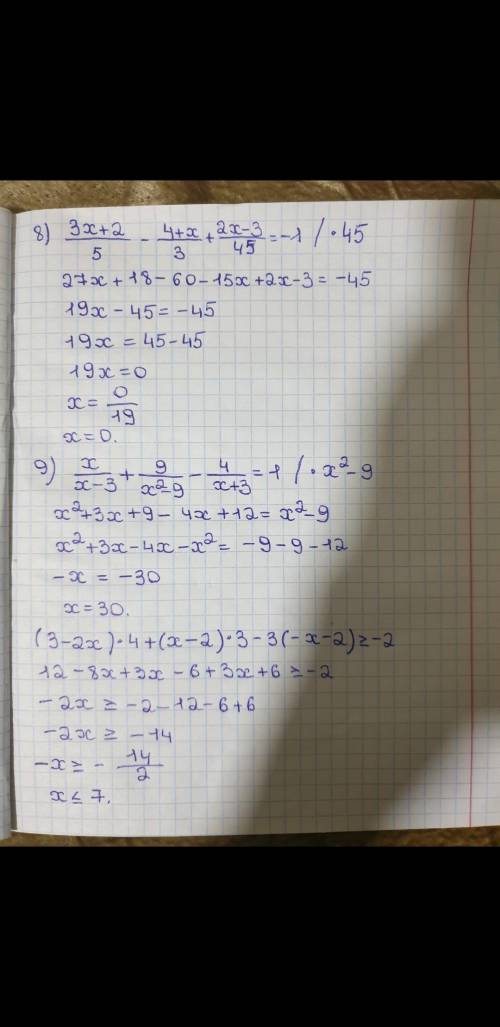 8) (3x+2)/5 - (4+x)/3 + (2x-3)/45 = -1 / · 45
27x + 18 - 60 - 15x + 2x - 3 = -45
19x - 45 = -45
19x = 45 - 45
19x = 0
x = 0/19
x = 0.
9) x/(x-3) + 9/(x²-9) - 4/(x+3) = 1 / · x²-9
x² + 3x + 9 - 4x + 12 = x² - 9
x² + 3x - 4x - x² = -9 - 9 - 12
-x = -30
x = 30.
(3-2x) · 4 + (x-2) · 3 - 3(-x-2) ≥ -2
12 - 8x + 3x - 6 + 3x + 6 ≥ -2
-2x ≥ -2 - 12 - 6 + 6
-2x ≥ -14
-x ≥ - 14/2
x ≤ 7.